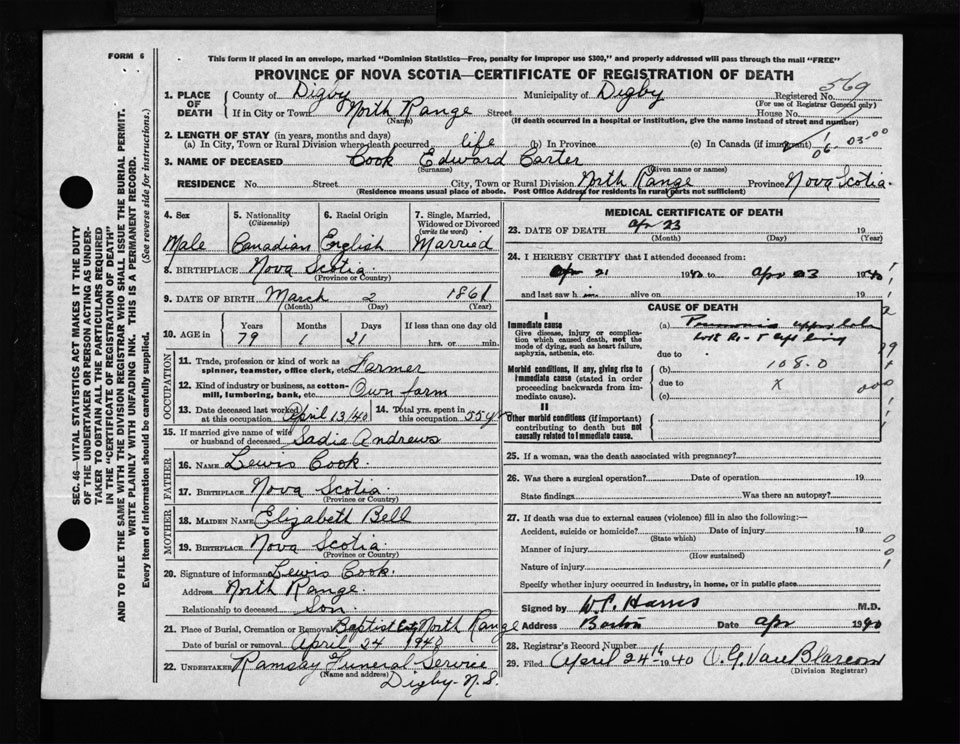 FORM 6
This form if placed in an envelope, marked "Dominion Statistics—Free, penalty for improper use $300," and properly addressed will pass through the mail "FREE"
PROVINCE OF NOVA SCOTIA—CERTIFICATE OF REGISTRATION OF DEATH
569
1. PLACE OF DEATH
County of Digby Municipality of Digby Registered No.
(For use of Registrar General only)
If in City or Town North Range Street House No.
(Name) (If death occurred in a hospital or institution, give the name instead of street and number)
2. LENGTH OF STAY (in years, months and days)
(a) In City, Town or Rural Division where death occurred life (b) In Province (c) In Canada (if immigrant)
06 03-00
3. NAME OF DECEASED Cook Edward Carter
(Surname) (Given name or names)
RESIDENCE No. Street City, Town or Rural Division North Range Province Nova Scotia.
(Residence means usual place of abode. Post Office Address for residents in rural parts not sufficient)
4. Sex Male
5. Nationality (Citizenship) Canadian
6. Racial Origin English
7. Single, Married, Widowed or Divorced (write the word) Married
8. BIRTHPLACE Nova Scotia.
(Province or Country)
9. DATE OF BIRTH March 2 1861
(Month) (Day) (Year)
10. AGE in Years Months Days If less than one day
79 1 21 hrs. or min.
OCCUPATION
11. Trade, profession or kind of work as spinner, teamster, office clerk, etc. Farmer
12. Kind of industry or business, as cotton-mill, lumbering, bank, etc. Own farm
13. Date deceased last worked at this occupation April 13/40
14. Total yrs. spent in this occupation 55 yrs
15. If married give name of wife or husband of deceased Sadie Andrews
FATHER
16. NAME Lewis Cook.
17. BIRTHPLACE Nova Scotia.
(Province or Country)
MOTHER
18. MAIDEN NAME Elizabeth Bell
19. BIRTHPLACE Nova Scotia.
(Province or Country)
20. Signature of informant Lewis Cook.
Address North Range.
Relationship to deceased Son.
21. Place of Burial, Cremation or Removal Baptist North Range
Date of burial or removal April 24 1940
22. UNDERTAKER Ramsay Funeral Service
(Name and address)
Digby-N.S.
MEDICAL CERTIFICATE OF DEATH
23. DATE OF DEATH Apr 23 19
(Month) (Day) (Year)
24. I HEREBY CERTIFY that I attended deceased from:
Apr 21 1940 to Apr 23 1940
and last saw h im alive on 19
CAUSE OF DEATH
I
Immediate cause
Give disease, injury or complication which caused death, not the mode of dying, such as heart failure, asphyxia, asthenia, etc.
(a) Pneumonia upper lobe
due to
Morbid conditions, if any, giving rise to immediate cause (stated in order proceeding backwards from immediate cause).
(b) 108.0
due to X
(c)
II
Other morbid conditions (if important) contributing to death but not causally related to immediate cause.
25. If a woman, was the death associated with pregnancy?
26. Was there a surgical operation? Date of operation 19
State findings Was there an autopsy?
27. If death was due to external causes (violence) fill in also the following:—
Accident, suicide or homicide? Date of injury 19
(State which)
Manner of injury
(How sustained)
Nature of injury
Specify whether injury occurred in industry, in home, or in public place
Signed by W. P. Harris M.D.
Address Date Apr 1940
28. Registrar's Record Number
29. Filed April 24th 1940 O. G. Van Blarcom
(Division Registrar)
SEC. 46—VITAL STATISTICS ACT MAKES IT THE DUTY
OF THE UNDERTAKER OR PERSON ACTING AS UNDER-
TAKER TO OBTAIN ALL THE PARTICULARS REQUIRED
IN THE "CERTIFICATE OF REGISTRATION OF DEATH"
AND TO FILE THE SAME WITH THE DIVISION REGISTRAR WHO SHALL ISSUE THE BURIAL PERMIT.
WRITE PLAINLY WITH UNFADING INK. THIS IS A PERMANENT RECORD.
Every item of information should be carefully supplied. (See reverse side for instructions.)